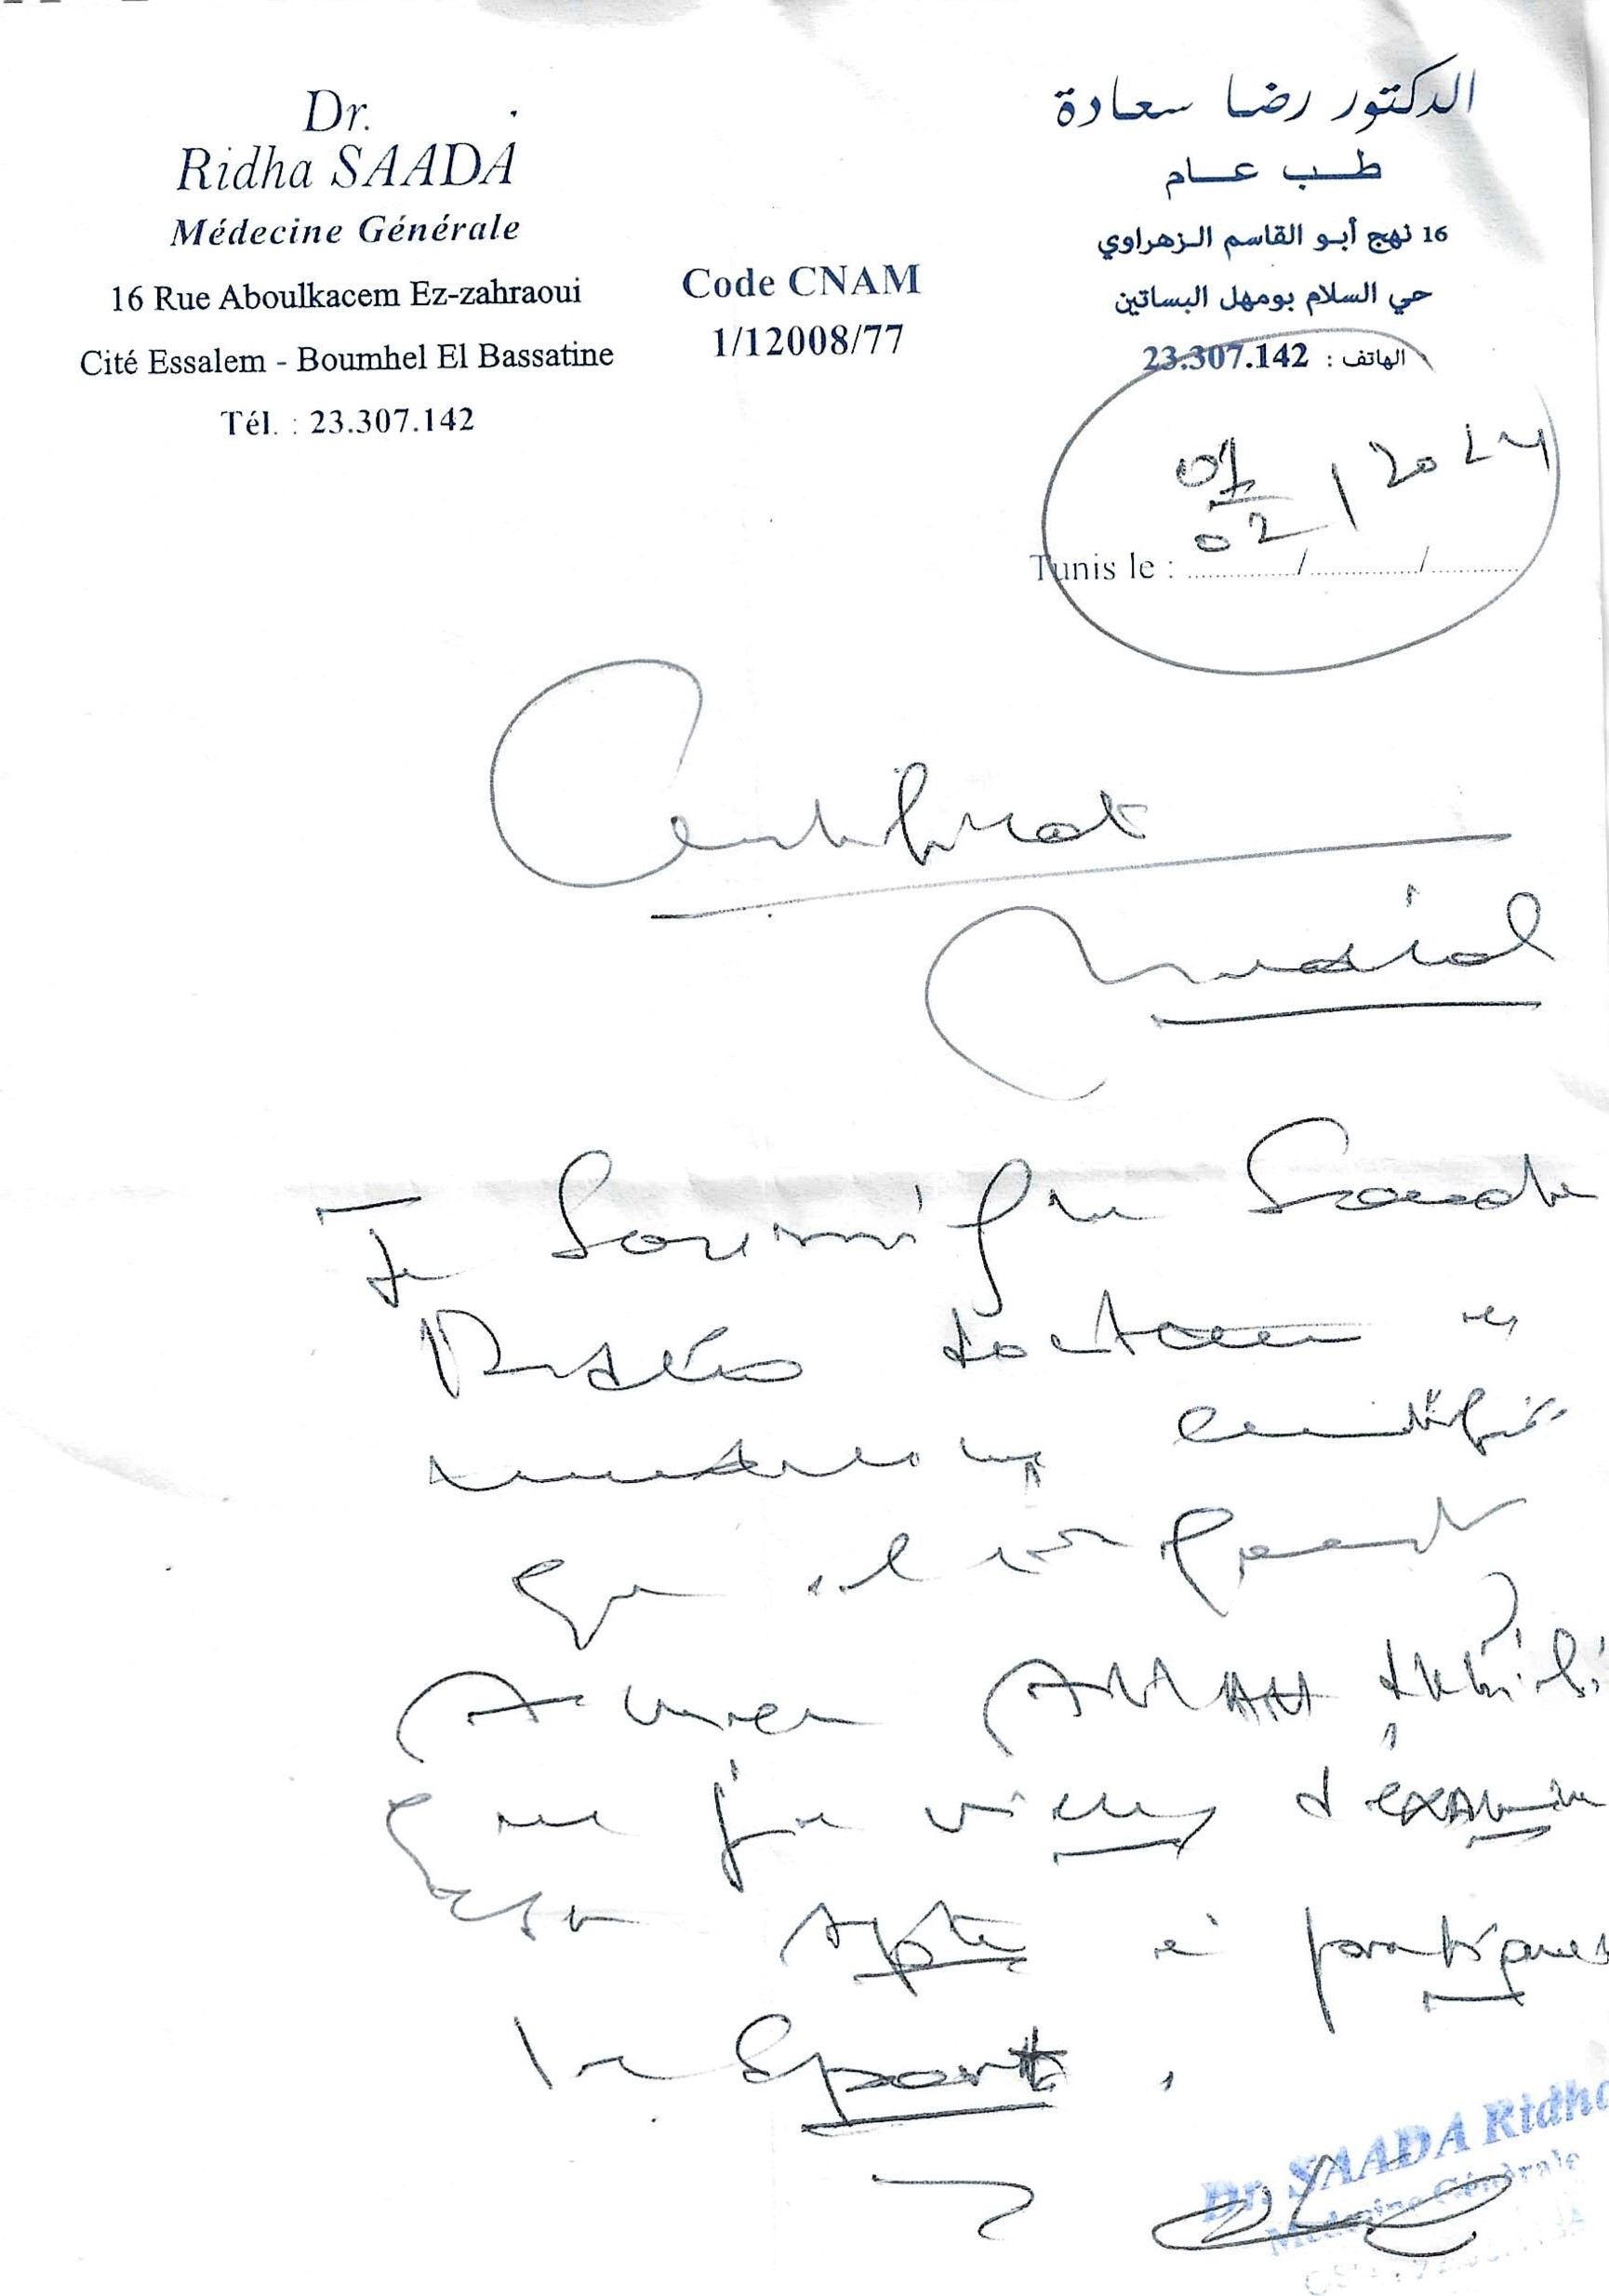 Dr.
Ridha SAADA
Médecine Générale
16 Rue Aboulkacem Ez-zahraoui
Cité Essalem - Boumhel El Bassatine
Tél. : 23.307.142
Code CNAM
1/12008/77
الدكتور رضا سعادة
طب عام
16 نهج أبو القاسم الزهراوي
حي السلام بومهل البساتين
الهاتف : 23.307.142
02 / 2024
Tunis le : ............/............/............
Certificat
Médical
Je Soussigné Saada
Ridha docteur en
certifie
que
que je viens d'examiner
est apte à pratiquer
le Sport.
Dr. SAADA Ridha
Médecine Générale